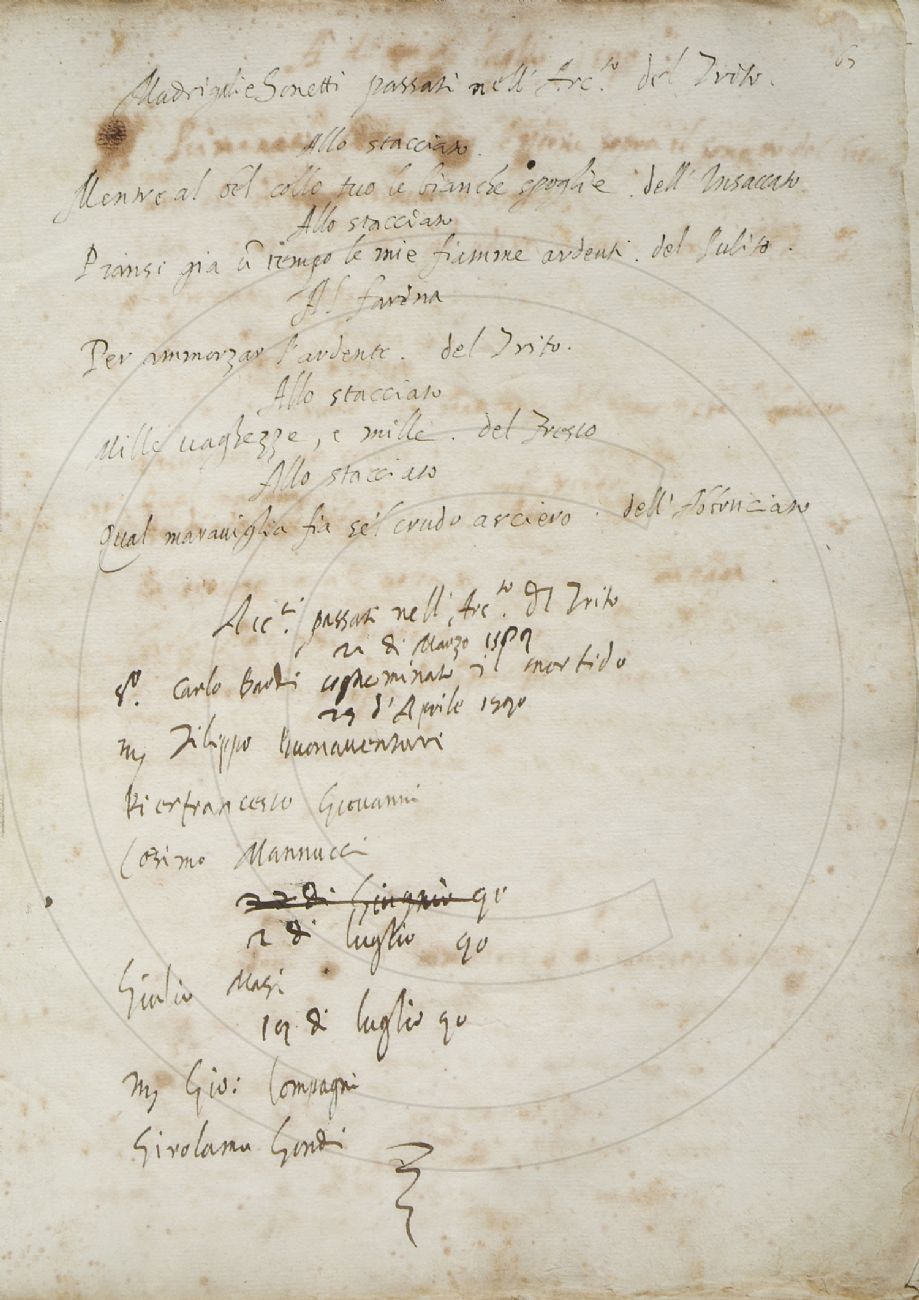 65
Madrigli e Sonetti passati nell' Arc.to del Trito.
Allo stacciato.
Mentre al bel collo tuo le bianche spoglie. dell' Insaccato
Allo stacciato
Piansi gia ũ tempo le mie fiamme ardenti. del Pulito.
Al farina
Per ammorzar l'ardente. del Trito.
Allo stacciato
Mille vaghezze, e mille. del Fresco
Allo stacciato
Qual maraviglia fia se'l crudo arciero. dell'
Acc.ti passati nell' Arc.to dl Trito
21 di Marzo 1589
S.r Carlo Bardi cognominato il mortido
29 d'Aprile 1590
m Filippo Buonaventuri
Pierfrancesco Giovanni
Cosimo Mannucci
22 di Giugnio 90
2 di luglio 90
Giulio Masi
19 di luglio 90
m Gio: Compagni
Girolamo Gondi